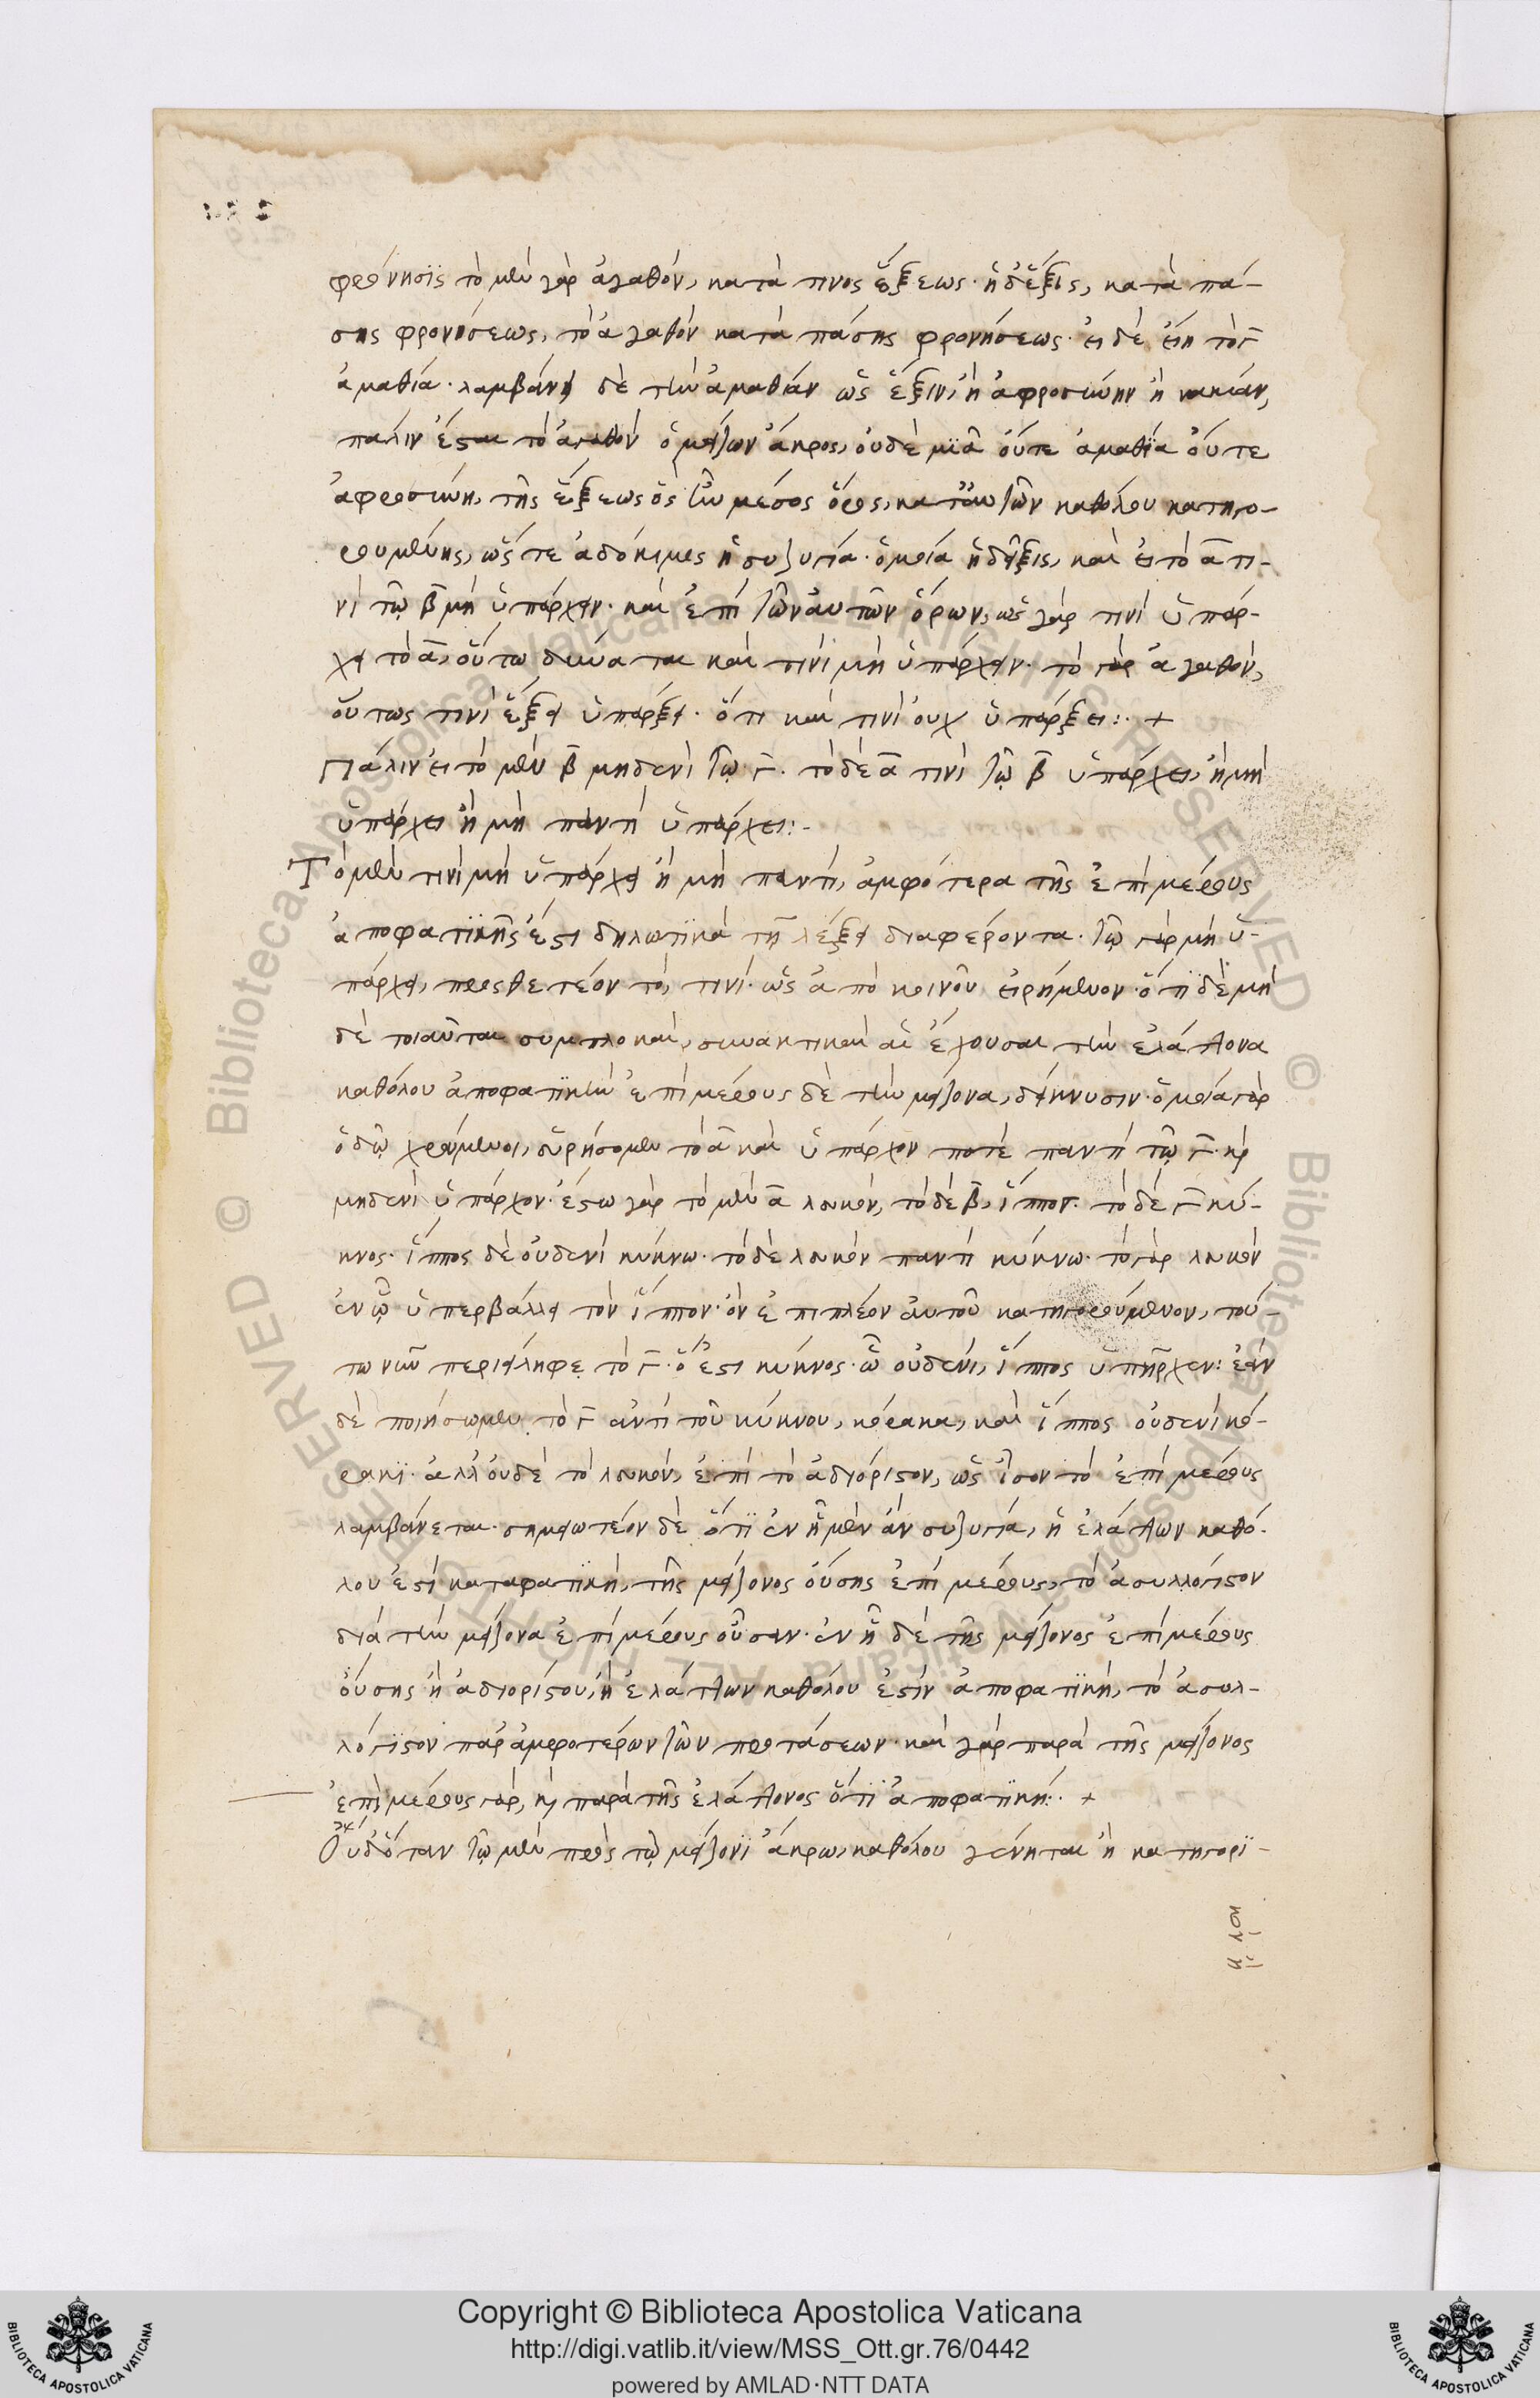 φρόνησϊς τὸ μὲν γὰρ ἀγαθόν, κατά τινος ἕξεως· ἡ δὲ ἕξις, κατὰ πά-
σης φρονήσεως, τὸ ἀγαθὸν κατὰ πάσης φρονήσεως· εἰ δὲ εἴη τὸ Γ
ἀμαθία· λαμβάνει δὲ τὴν ἀμαθίαν ὡς ἕξιν, ἢ ἀφροσύνην ἢ κακίαν,
πάλιν ἔσται τὸ ἀγαθὸν ὁ μείζων ἄκρος, οὐδὲ μϊᾶ οὔτε ἀμαθία οὔτε
ἀφροσύνη, τῆς ἕξεως ὃς ἦν μέσος ὅρος, κατ' αὐτῶν καθόλου κατηγο-
ρουμένης, ὥστε ἀδόκιμος ἡ συζυγία· ὁμοία ἡ δεῖξις, καὶ εἰ τὸ α τι-
νὶ τῷ β μὴ ὑπάρχειν· καὶ ἐπὶ τῶν αὐτῶν ὅρων, ὡς γάρ τινι ὑπάρ-
χει τὸ α, οὕτω δύναται καὶ τινὶ μὴ ὑπάρχειν· τὸ γὰρ ἀγαθὸν,
οὕτως τινὶ ἕξει ὑπάρξει· ὅτι καὶ τινὶ οὐχ ὑπάρξει:· +
Πάλιν εἰ τὸ μὲν β μηδενὶ τῷ Γ· τὸ δὲ α τινὶ τῷ β ὑπάρχει, ἢ μὴ
ὑπάρχει ἢ μὴ παντὶ ὑπάρχει:·
Τὸ μὲν τινὶ μὴ ὑπάρχει ἢ μὴ παντὶ, ἀμφότερα τῆς ἐπὶ μέρους
ἀποφατϊκῆς ἐστι δηλωτϊκὰ τῇ λέξει διαφέροντα· τῷ γὰρ μὴ ὑ-
πάρχει, προσθετέον τὸ, τινί· ὡς ἀπὸ κοινοῦ εἰρημένον· ὅτϊ δὲ μὴ
δὲ τοιαῦται συμπλοκαὶ, συνακτικαὶ αἱ ἔχουσαι τὴν ἐλάττονα
καθόλου ἀποφατϊκὴν ἐπὶ μέρους δὲ τὴν μείζονα, δείκνυσιν· ὁμοία γὰρ
ὁδῷ χρώμενοι, εὑρήσομεν τὸ α καὶ ὑπάρχον ποτὲ παντὶ τῷ Γ· καὶ
μηδενὶ ὑπάρχον· ἔστω γὰρ τὸ μὲν α λευκὸν, τὸ δὲ β, ἵππον· τὸ δὲ Γ κύ-
κνος· ἵππος δὲ οὐδενὶ κύκνω· τὸ δὲ λευκὸν παντὶ κύκνω· τὸ γὰρ λευκὸν
ἐν ᾧ ὑπερβάλλει τὸν ἵππον· ὂν ἐπιπλέον αὐτοῦ κατηγορούμενον, τού-
τω νῦν περιείληφε τὸ Γ· ὅ ἐστι κύκνος· ᾧ οὐδενὶ, ἵππος ὑπῆρχεν: ἐὰν
δὲ ποιήσωμεν τὸ Γ ἀντὶ τοῦ κύκνου, κόρακα, καὶ ἵππος οὐδενὶ κό-
ρακϊ· ἀλλ' οὐδὲ τὸ λευκὸν, ἐπὶ τὸ ἀδιόριστον, ὡς ἴσον τὸ ἐπὶ μέρους
λαμβάνεται· σημειωτέον δὲ ὅτϊ ἐν ᾗ μὲν ἂν συζυγία, ἡ ἐλάττων καθό-
λου ἐστὶ καταφατϊκὴ, τῆς μείζονος οὔσης ἐπὶ μέρους, τὸ ἀσυλλόγιστον
διὰ τὴν μείζονα ἐπὶ μέρους οὖσαν· ἐν ᾗ δὲ τῆς μείζονος ἐπὶ μέρους
οὔσης ἢ ἀδιορίστου, ἡ ἐλάττων καθόλου ἐστὶν ἀποφατϊκὴ, τὸ ἀσυλ-
λόγϊστον παρ' ἀμφοτέρων τῶν προτάσεων· καὶ γὰρ παρὰ τῆς μείζονος
ἐπὶ μέρους γὰρ, καὶ παρὰ τῆς ἐλάττονος ὅτϊ ἀποφατϊκή:· +
Οὐδ' ὅταν τῷ μὲν πρὸς τῷ μείζονϊ ἄκρω, καθόλου γένηται ἢ κατηγορϊ-
κὸν ἢ
Copyright © Biblioteca Apostolica Vaticana
http://digi.vatlib.it/view/MSS_Ott.gr.76/0442
powered by AMLAD·NTT DATA